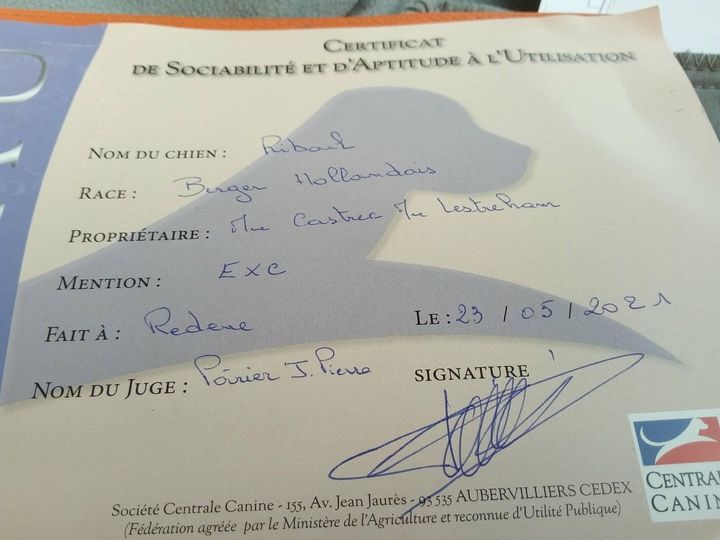 CERTIFICAT
DE SOCIABILITÉ ET D'APTITUDE À L'UTILISATION
NOM DU CHIEN :
RACE : Berger Hollandais
PROPRIÉTAIRE : Castrec Lestrehan
MENTION : EXC
FAIT À : Redene LE : 23 / 05 / 2021
NOM DU JUGE : Poirier J. Pierre SIGNATURE
CENTRALE
CANIN
Société Centrale Canine - 155, Av. Jean Jaurès - 93 535 AUBERVILLIERS CEDEX
(Fédération agréée par le Ministère de l'Agriculture et reconnue d'Utilité Publique)